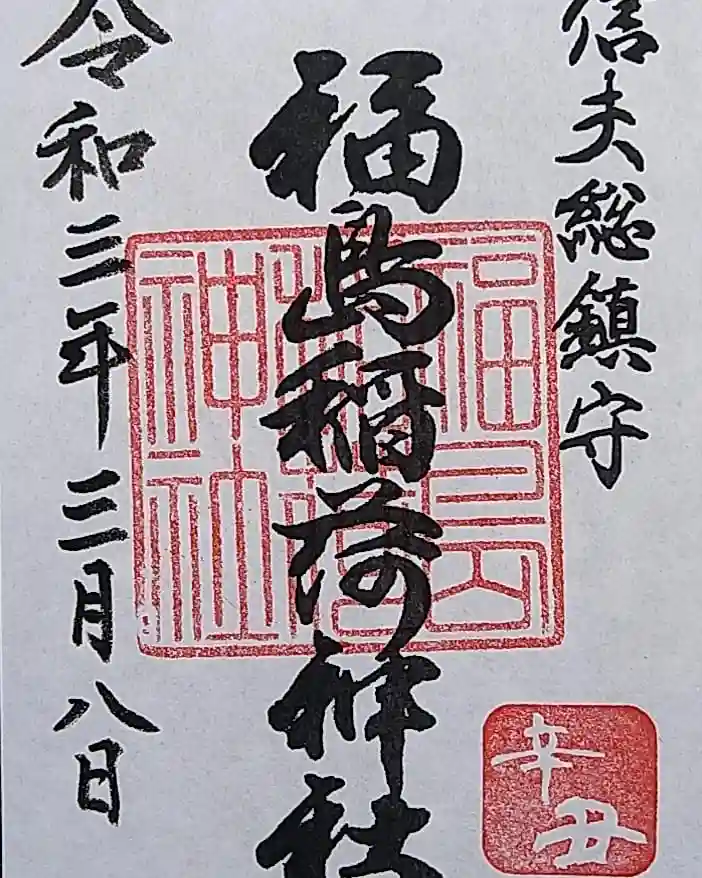 信夫総鎮守
福島稲荷神社
令和三年三月八日
福島稲荷神社
辛丑